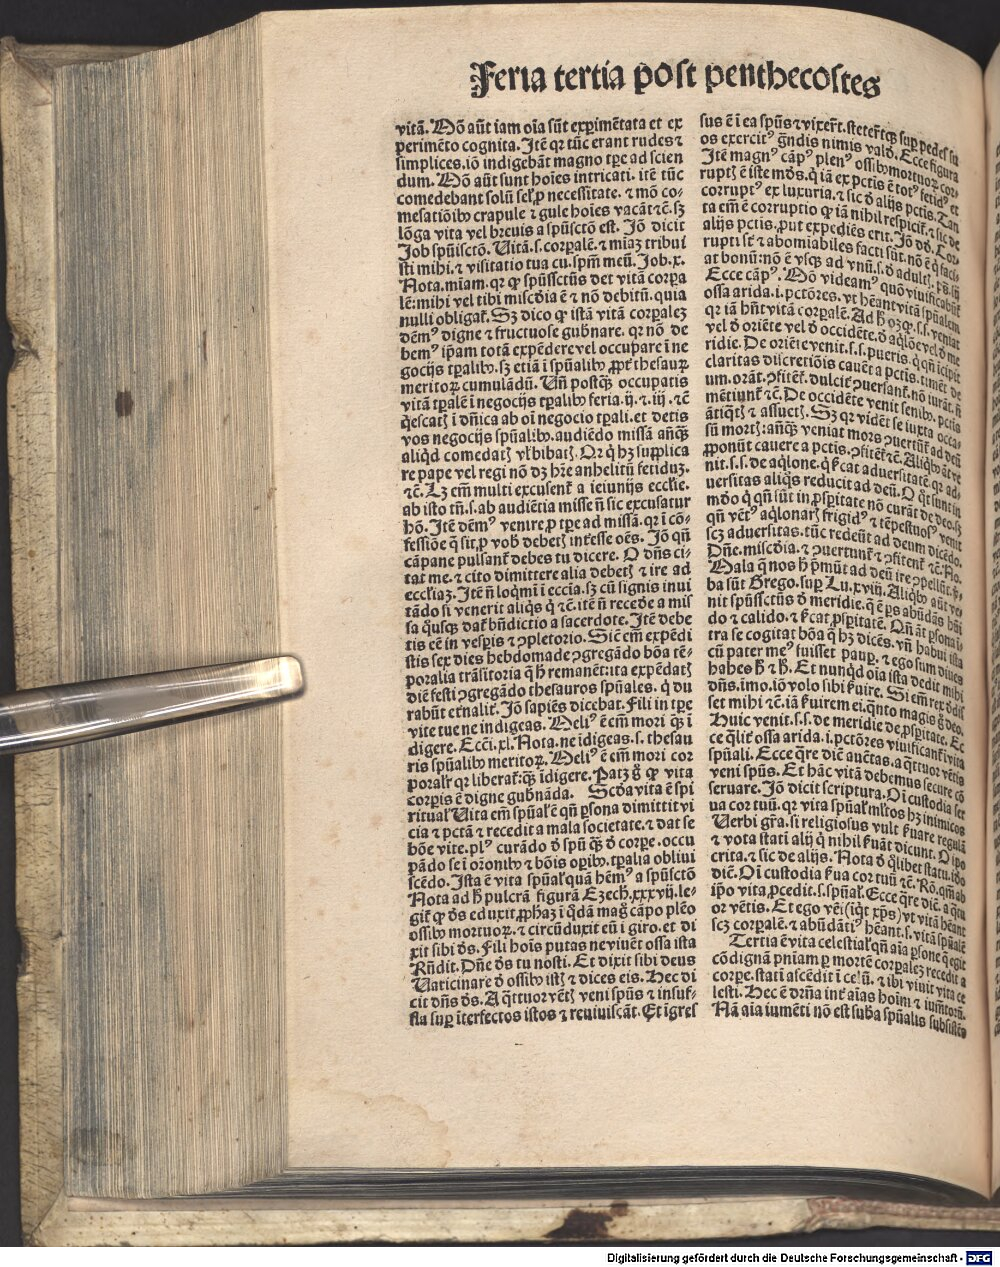 Feria tertia post penthecostes
vitā. Mō aūt iam oīa sūt expimētata et ex
perimēto cognita. Itē qr tūc erant rudes ⁊
simplices. iō indigebāt magno tꝑe ad scien
dum. Mō aūt sunt hoīes intricati. itē tūc
comedebant solū sel' ꝓ necessitate. ⁊ mō co-
mesatiōibꝰ crapule ⁊ gule hoīes vacāt ⁊c̄. sꝫ
lōga vita vel breuis a spūsctō est. Iō dicit
Job spūisctō. Uitā. s. corꝑalē. ⁊ miaꝫ tribui
sti mihi. ⁊ visitatio tua cu. spm̄ meū. Job. x.
Nota. miam. qr ꝙ spūssctūs det vitā corꝑa
lē: mihi vel tibi miscd̄ia ē ⁊ nō debitū. quia
nulli obligat̄. Sꝫ dico ꝙ istā vitā corꝑaleꝫ
dēmꝰ digne ⁊ fructuose gub̄nare. qr nō de
bemꝰ ip̄am totā expēdere vel occupare ī ne
gocijs tꝑalibꝰ. sꝫ etiā ī spūalibꝰ ꝓpt̄ thesauꝝ
meritoꝝ cumulādū. Un̄ postqꝫ occupatis
vitā tꝑalē ī negocijs tꝑalibꝰ feria. ij. ⁊ .iij. ⁊c̄
q̇escatꝭ ī dn̄ica ab oī negocio tꝑali. et detis
vos negocijs spūalibꝰ. audiēdo missā anq̄ꝫ
aliqd̄ comedatꝭ vl' bibatꝭ. Qr q̇ hꝫ supplica
re pape vel regi nō dꝫ hr̄e anhelitū fetiduꝫ.
⁊c̄. Lꝫ em̄ multi excusent̄ a ieiunijs eccl'ie.
ab isto tn̄. s. ab audiētia misse n̄ sic excusatur
hō. Itē dēmꝰ venire ꝓ tꝑe ad missā. qr ī cō-
fessiōe q̄ sit. ꝓ vob̄ debetꝭ inteesse oēs. Iō qn̄
cāpane pulsant̄ debes tu dicere. O dn̄s ci-
tat me. ⁊ cito dimittere alia debetꝭ ⁊ ire ad
eccl'iaꝫ. Itē n̄ loqm̄ī ī eccīa. sꝫ cū signis inui
tādo si venerit aliqs q̇ ⁊c̄. itē n̄ recede a mis
sa q̇usqꝫ dat̄ bn̄dictio a sacerdote. Itē debe
tis eē in vesꝑis ⁊ ꝯpletorio. Sic̄ em̄ expēdi
stis sex dies hebdomade ꝯgregādo bōa tē-
poralia trāsitoria q̄ h̄ remanēt. ita expēdatꝭ
diē festi ꝯgregādo thesauros spūales. q̇ du
rabūt et̄nalit̄. Iō sapiēs dicebat. Fili in tꝑe
vite tue ne indigeas. Meliꝰ ē em̄ mori qꝫ ī
digere. Ecc̄i. xl. Nota. ne īdigeas. s. thesau
ris spūalibꝰ meritoꝝ. Meliꝰ ē em̄ mori cor
poralr̄ qr liberat̄. qꝫ īdigere. Patꝫ g̊ ꝙ vita
corꝑis ē digne gub̄nāda. Scd̄a vita ē spi
ritual' Uita em̄ spūal' ē qn̄ ꝑsona dimittit vi
cia ⁊ pctā ⁊ recedit a mala societate. ⁊ dat se
bōe vite. plꝰ curādo d̄ spū qꝫ d̄ corꝑe. occu
pādo se ī or̄onibꝰ ⁊ bōis oꝑibꝰ. tꝑalia obliui
scēdo. Ista ē vita spūal' quā hēmꝰ a spūsctō
Nota ad h̄ pulcrā figurā Ezech. xxxvij. le-
git̄ ꝙ dn̄s eduxit ꝓphaꝫ ī q̇dā mag̊ cāpo plēo
ossibꝰ mortuoꝝ. ⁊ circūduxit eū ī giro. et di
xit sibi dn̄s. Fili hoīs putas ne viuēt ossa ista
Rn̄dit. Dn̄e d̄s tu nosti. Et dixit sibi deus
Uaticinare d̄ ossibꝰ istꝭ ⁊ dices eis. Hec di
cit dn̄s d̄s. A q̇ttuor vētꝭ veni spūs ⁊ insuf-
fla suꝑ īterfectos istos ⁊ reuiuiscāt. Et īgres
sus ē ī ea spūs ⁊ vixer̄t. steter̄tqꝫ suꝑ pedes su
os exercitꝰ g̊ndis nimis vald̄. Ecce figura
Itē magnꝰ cāpꝰ plenꝰ ossibꝰ mortuoꝝ cor-
ruptꝭ ē iste mūds. q̇ iā ex pctis ē totꝰ fetidꝰ et
corruptꝰ ex luxuria. ⁊ sic d̄ alijs pctis. Tan
ta em̄ ē corruptio ꝙ iā nihil respicit̄. ⁊ sic de
alijs pctis. ꝓut expediēs erit. Iō d̄d. Cor-
rupti st̄ ⁊ abomiabiles facti sūt. nō ē q̇ faci-
at bonū: nō ē vsqꝫ ad vnū. s. d̄ adultꝭ.
Ecce cāpꝰ. Mō videamꝰ quō viuificabūt̄
ossa arida. i. pctōres. vt hēant vitā spūalem
qr iā hn̄t vitā corꝑalē. Ad h̄ oꝫ ꝙ. s. s. veniat
vel d̄ oriēte vel d̄ occidēte. d̄ aqlōe vel d̄ me
ridie. De oriēte venit. s. s. pueris. q̇ qn̄ icipit
claritas discretiōis cauēt a pctis. timēt de
um. orāt. ꝯfitēt̄. dulcit̄ ꝯuersant̄. nō iurāt. n̄
mētiunt̄ ⁊c̄. De occidēte venit senibꝰ. pctis
ātiqtꝭ ⁊ assuetꝭ. Sꝫ qr vidēt se iuxta occa-
sū mortꝭ: anq̄ꝫ veniat mors ꝯuertūt̄ ad deū
ꝓponūt cauere a pctis. ꝯfitēt̄ ⁊c̄. Aliqbꝰ āt ve
nit. s. s. de aqlone. q̇ sc̄at aduersitatē. qr ad-
uersitas aliqs reducit ad deū. O qt sunt in
mūdo q̇ qn̄ sūt in ꝓsꝑitate nō curāt de deo. sꝫ
qn̄ vētꝰ aqlonarꝭ frigidꝰ ⁊ tēpestuosꝰ venit
scꝫ aduersitas. tūc redeūt ad deum dicēdo.
Dn̄e. miscd̄ia. ⁊ ꝯuertunt̄ ⁊ ꝯfitent̄ ⁊c̄. No.
Mala q̄ nos h̄ p̄mūt ad deū ire ꝯpellūt. v̄-
ba sūt Grego. suꝑ Lu. xviij. Aliqbꝰ aūt ve-
nit spūssctūs d̄ meridie. q̄ ē ꝑs abūdās hn̄i
do ⁊ calido. ⁊ sc̄at ꝓsꝑitatē. Qn̄ āt ꝑsona ī-
tra se cogitat bōa q̄ hꝫ dicēs. vn̄ habui ista
cū pater meꝰ fuisset pauꝑ. ⁊ ego sum diues
habeo h̄ ⁊ h̄. Et nunqd̄ oīa ista dedit mihi
dn̄s. imo. iō volo sibi s̄uire. Si em̄ rex dedis
set mihi ⁊c̄. iā s̄uirem ei. qnto magis g̊ deo.
Huic venit. s. s. de meridie de ꝓsꝑitate. Ec
ce qlit̄ ossa arida. i. pctōres viuificant̄ ī vita
spūali. Ecce qre diē auctas. a q̇ttuor vētis
veni spūs. Et hāc vitā debemus secure cō
seruare. Iō dicit scriptura. Oī custodia ser
ua cor tuū. qr vita spūal' m̄tos hꝫ inimicos
Uerbi gr̄a. si religiosus vult s̄uare regulā
⁊ vota stati alij q̇ nihil s̄uāt dicunt. O ipo
crita. ⁊ sic de alijs. Nota d̄ qlibet statu. iō
diē. Oī custodia s̄ua cor tuū ⁊c̄. Rō. qm̄ ab
ip̄o vita ꝓcedit. s. spūal'. Ecce qre diē. a q̇ttu
or vētis. Et ego vēi (iqt xp̄s) vt vitā hēant
scꝫ corꝑalē. ⁊ abūdātiꝰ hēant. s. vitā spūalē
Tertia ē vita celestial' qn̄ aīa ꝑsone q̄ egit
cōdignā pn̄iam ꝑ mortē corꝑaleꝫ recedit a
corꝑe. stati ascēdit ī celū. ⁊ ibi viuit vita ce
lesti. Hec ē dr̄na int̄ aīas hoīm ⁊ iumētoꝝ.
Nā aīa iumēti nō est suba spūalis subsistēs
Digitalisierung gefördert durch die Deutsche Forschungsgemeinschaft - DFG